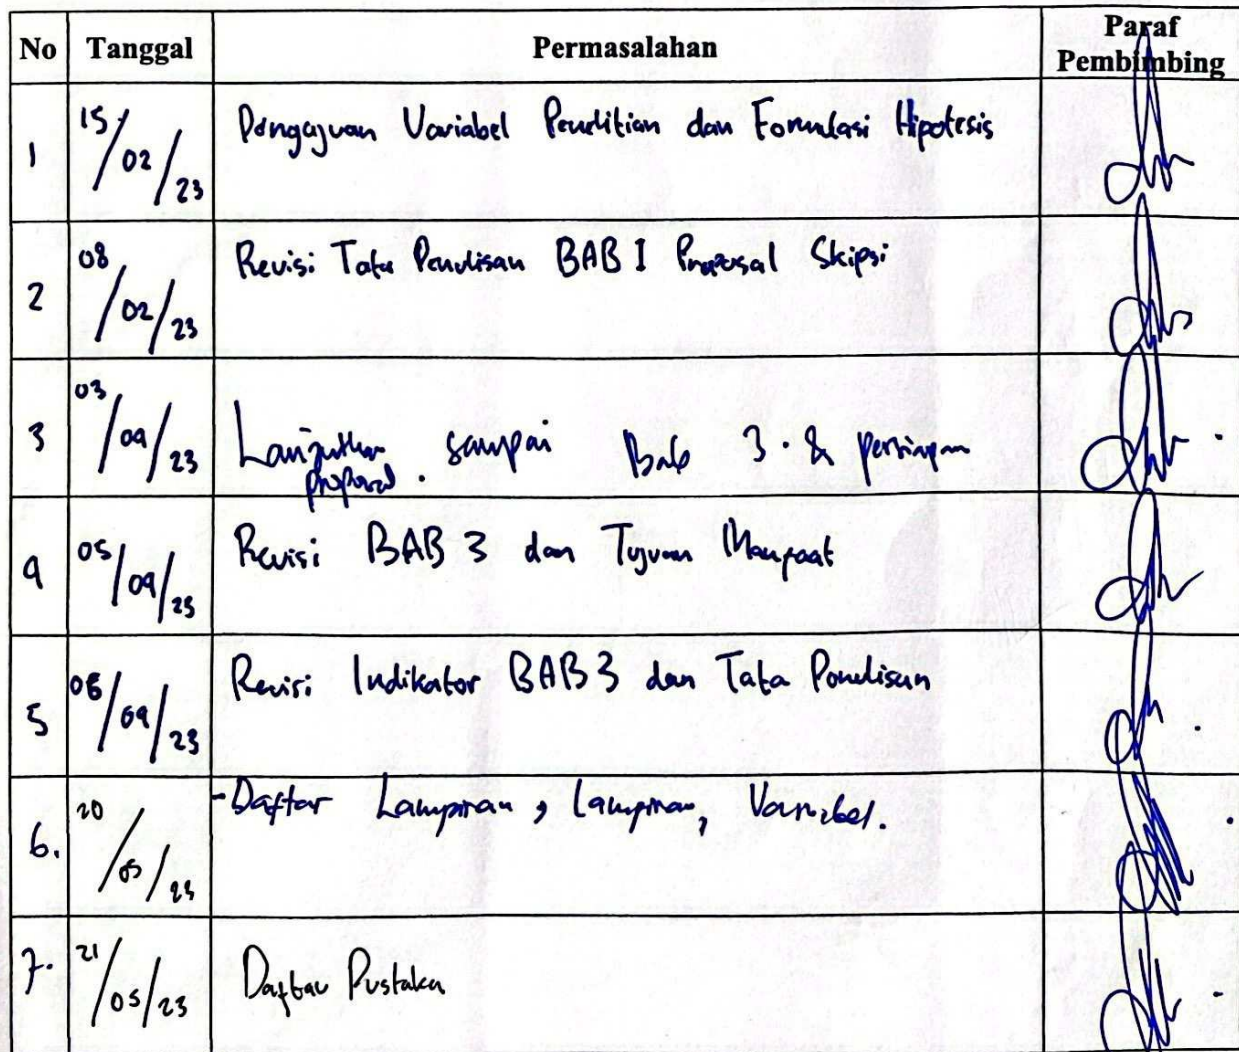 No Tanggal Permasalahan Paraf Pembimbing
1 15/02/23 Pengajuan Variabel Penelitian dan Formulasi Hipotesis
2 08/02/23 Revisi Tata Penulisan BAB I Proposal Skipsi
3 03/04/23 Lanjutkan sampai Bab 3. &
proposal.
4 05/04/23 Revisi BAB 3 dan Tujuan Manfaat
5 /04/23 Revisi Indikator BAB 3 dan Tata Penulisan
6. 20/05/23 - Daftar Lampiran, Lampiran, Variabel.
7. 21/05/23 Daftar Pustaka